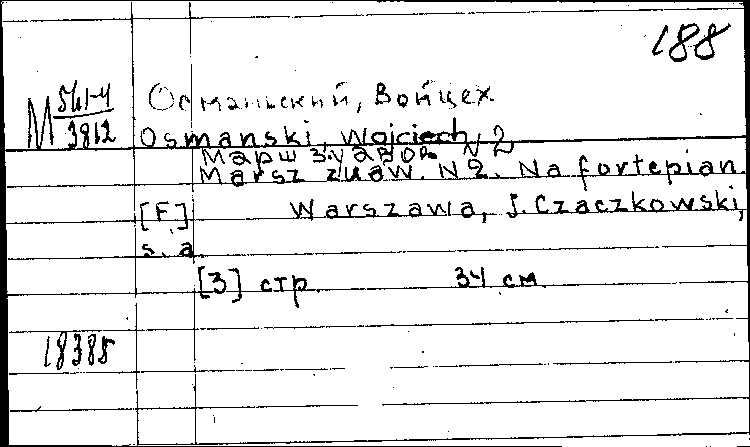 188
М 561-4
3812
Османьский, Войцех
Osmanski, Wojciech
Марш зуавов N 2
Marsz zuaw. N 2. Na fortepian.
[F] Warszawa, J. Czaczkowski,
s. a.
[3] стр. 34 см.
18385